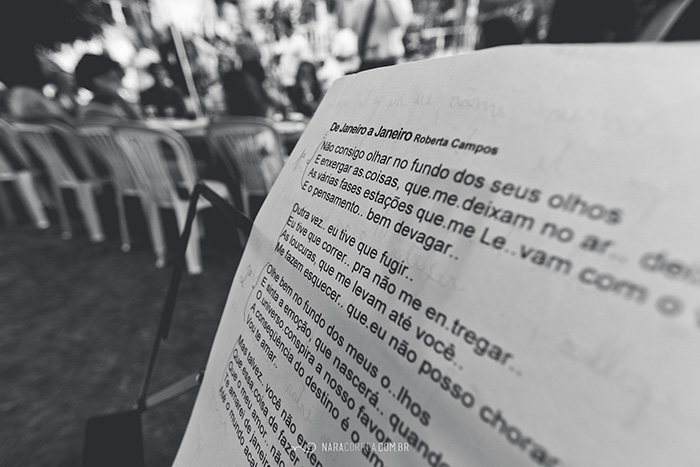 De Janeiro a Janeiro Roberta Campos
Não consigo olhar no fundo dos seus olhos
E enxergar as coisas, que.me.deixam no ar.. dei
As várias fases estações que.me Le..vam com o v
E o pensamento.. bem devagar..
Outra vez.. eu tive que fugir..
Eu tive que correr.. pra não me en.tregar..
As loucuras, que me levam até você..
Me fazem esquecer.. que.eu não posso chorar
Olhe bem no fundo dos meus o..lhos
E sinta a emoção, que nascerá.. quando
O universo conspira a nosso favor
A conseqüência do destino é o am
Vou te amar..
Mas talvez.. você não enten
Que essa coisa de fazer
Que o meu amor.. não
Te amarei de janeiro
Até o mundo acab
NARACORREA.COM.BR